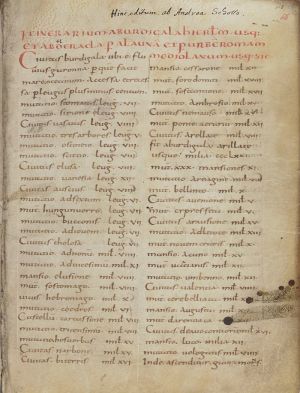 Hinc editum ab Andrea Schotto
ITINERARIUM A BURDIGALA HIERUSALEM USQ;
ET AB ERACLEA PER AULONA ET PER URBE ROMAM
MEDIOLANUM USQ; SIC
Civitas burdigala ubi e flu
vius garonna per que facit
mare oceanum accessa recessa
sa p leugas plus minus centum.
mutatio stomatas leug. VII
mutatio sirione leug. VIII
Civitas vasatas leug. VIIII
mutatio tres arbores leug. V
mutatio oscineio leug. VIII
mutatio scittio leug. VIII
Civitas elusa leug. VIII
mutatio vanesia leug. XII
Civitas auscius leug. VIII
mutatio ad sextum leug. VI
mut. hungunverro leug. VII
mutatio bucconis leug. VII
mutatio ad iovem leug. VII
Civitas tholosa leug. VII
mutatio ad nonum mil. VIIII
mutatio ad vicesimum mil. XI
mansio elusione mil. VIIII
mut. sostomago mil. VIIII
vicus hebromago mil. X
mutatio cedros mil. VI
Castellu carcassone mil. VIII
mutatio tricensimum mil. VIII
mutatio hosverbas mil. XV
Civitas narbone mil. XV
Civitas biterris mil. XVI
mansio cessarone mil. XII
mut. foro domiti mil. XVIII
mut. sostantione mil. XVII
mutatio ambrosio mil. XV
Civitas nemauso mil. XV
mut. ponte aerarium mil. XII
Civitas arellate mil. VIII
fit a burdigala arellate
usque milia CCCLXXI
mut. XXX mansiones XI
mutatio arnagine mil. VIII
mut. bellinto mil. X
Civitas avenione mil. V
mut. cypresseta mil. V
Civitas arausione mil. XV
mutatio ad lectoce mil. XIII
mut. novem craris mil. X
mansio acuno mil. XV
mut. vancianis mil. XII
mutatio umbenno mil. XII
Civitas valentia mil. VIIII
mut. cerebelliaca mil. XII
mansio augusta mil. X
mut. darentiaca mil. XII
Civitas dea vocontiorum mil. XVI
mansio luco milia XII
mutatio vologatis mil. VIIII
Inde ascenditur gaura mons.